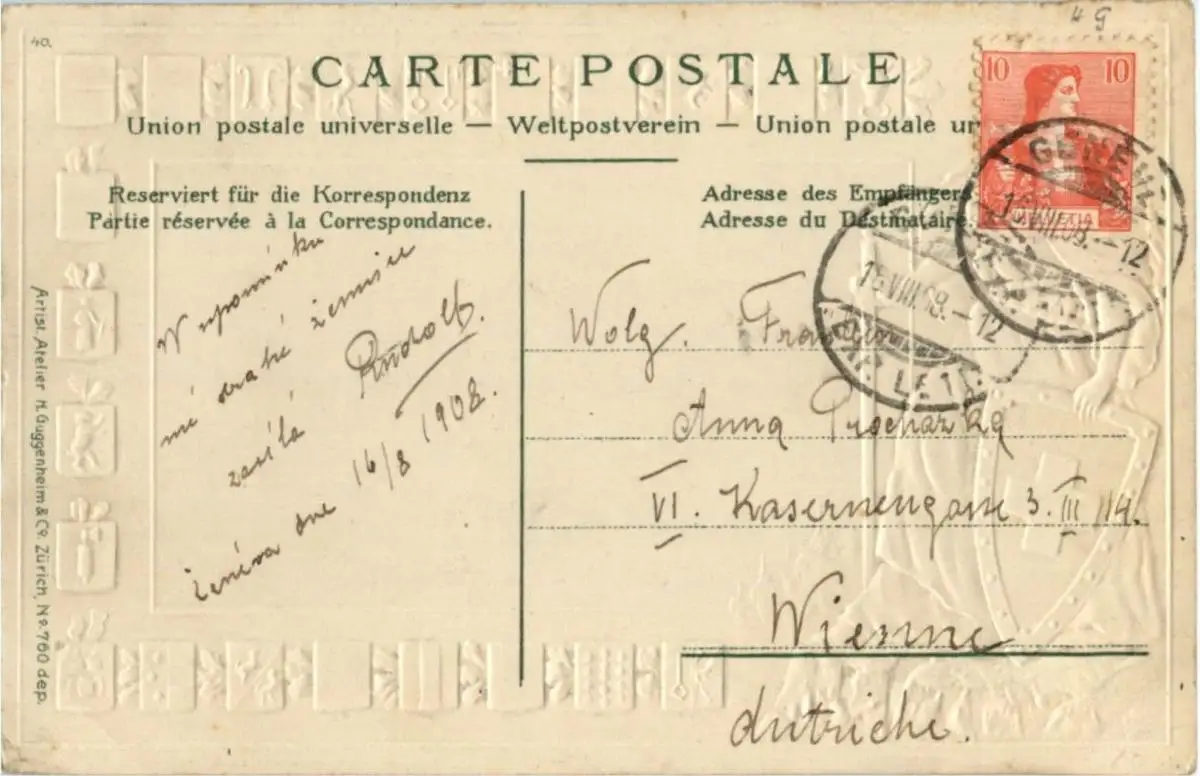 4a
CARTE POSTALE
Union postale universelle — Weltpostverein — Union postale un
Reserviert für die Korrespondenz
Partie réservée à la Correspondance.
Adresse des Empfängers
Adresse du Destinataire
10 10
HELVETIA
GENÈVE
16.VIII.08.-12
16.VIII.08.-12
EXP. LETT.
V upomínku
mé drahé ženušce
zasílá Rudolf.
Ženéva dne 16/8 1908.
Wolg. Frau
Anna Prochazka
VI. Kasernengasse 3. III/14.
Wienne
Autriche.
Artist. Atelier H. Guggenheim & Co. Zürich, No. 760 dep.